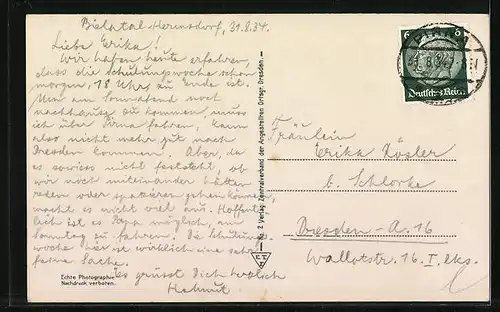 Bielatal-Hermsdorf, 31.8.34.
Liebe Erika!
Wir haben heute erfahren,
dass die Schulungswoche schon
morgen, 18 Uhr, zu Ende ist.
Um am Sonnabend noch
nachhause zu kommen, muss
ich über Pirna fahren. Kann
also nicht mehr mit nach
Dresden kommen. Aber, da
es sowieso nicht feststeht, ob
wir noch miteinander hätten
reden oder spazieren gehen können,
macht es nicht viel aus. Hoffent-
lich ist es möglich, am
Sonntag zu fahren. Die Schulungs-
woche hier ist wirklich eine sehr
feine Sache.
Es grüsst Dich herzlich
Helmut
Echte Photographie
Nachdruck verboten.
Nr. 2 Verlag Zentralverband der Angestellten Ortsgr. Dresden.
6 6
Deutsches Reich
Fräulein
Erika
b. Schlorke
Dresden-A. 16
Wallotstr. 16. I. lks.